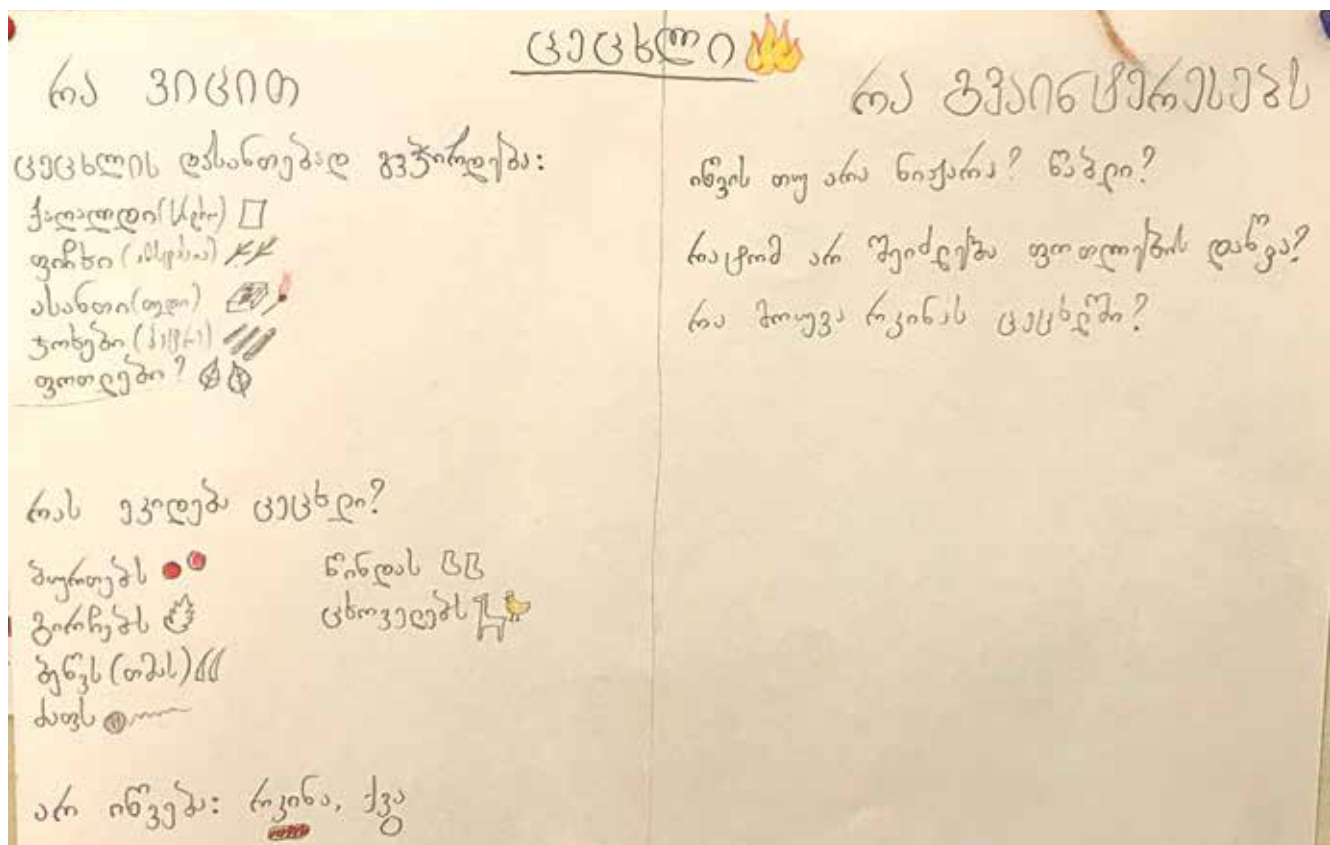 ცეცხლი
რა ვიცით
ცეცხლის დასანთებად გვჭირდება:
ქაღალდი (სანდრო)
ფიჩხი (ანასტასია)
ასანთი (თედი)
ჯოხები
ფოთლები?
რას ეკიდება ცეცხლი?
ბურთებს
გირჩებს
ბეწვს (თმას)
ძაფს
წინდას
ცხოველებს
არ იწვება: რკინა, ქვა
რა გვაინტერესებს
იწვის თუ არა ნიჟარა? წაბლი?
რატომ არ შეიძლება ფოთლების დაწვა?
რა მოუვა რკინას ცეცხლში?